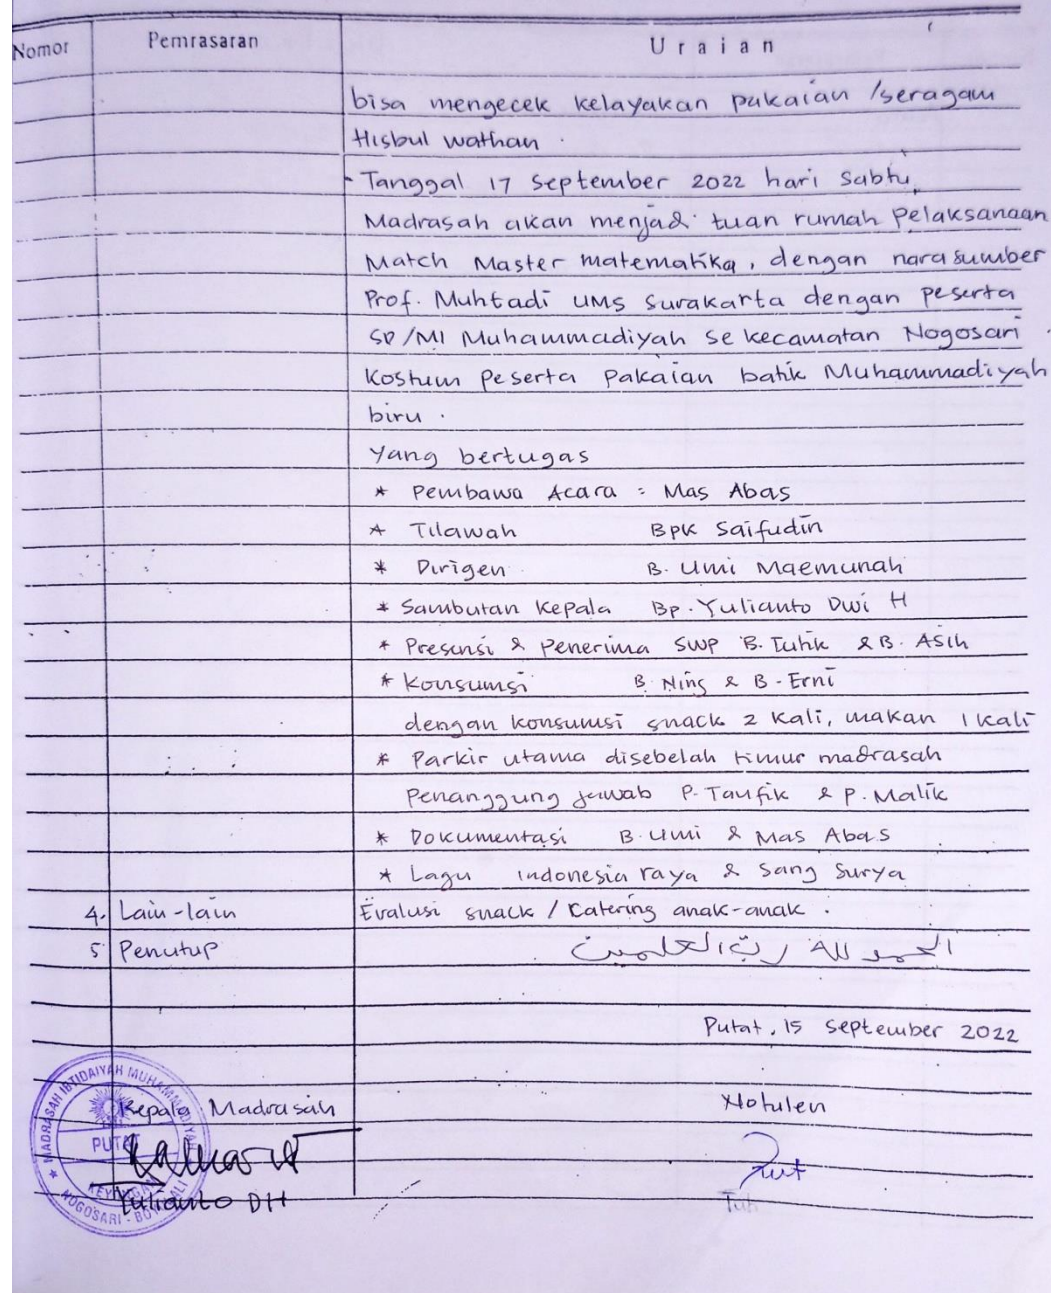 Nomor Pemrasaran Uraian
bisa mengecek kelayakan pakaian /seragam
Hisbul wathan.
- Tanggal 17 September 2022 hari Sabtu,
Madrasah akan menjadi tuan rumah pelaksanaan
Match Master matematika, dengan nara sumber
Prof. Muhtadi UMS Surakarta dengan peserta
SD/MI Muhammadiyah se kecamatan Nogosari.
Kostum peserta pakaian batik Muhammadiyah
biru.
Yang bertugas
* Pembawa Acara : Mas Abas
* Tilawah Bpk Saifudin
* Dirigen B. Umi Maemunah
* Sambutan Kepala Bp. Yulianto Dwi H
* Presensi & Penerima SWP B. Tutik & B. Asih
* Konsumsi B. Ning & B. Erni
dengan konsumsi snack 2 kali, makan 1 kali
* Parkir utama disebelah timur madrasah
Penanggung jawab P. Taufik & P. Malik
* Dokumentasi B. Umi & Mas Abas
* Lagu indonesia raya & Sang Surya
4. Lain-lain Evalusi snack / Catering anak-anak.
5 Penutup الحمد لله ربّ العلمين
Putat, 15 September 2022
Kepala Madrasah Notulen
MADRASAH IBTIDAIYAH MUHAMMADIYAH
PUTAT
NOGOSARI - BOYOLALI
Yulianto DH